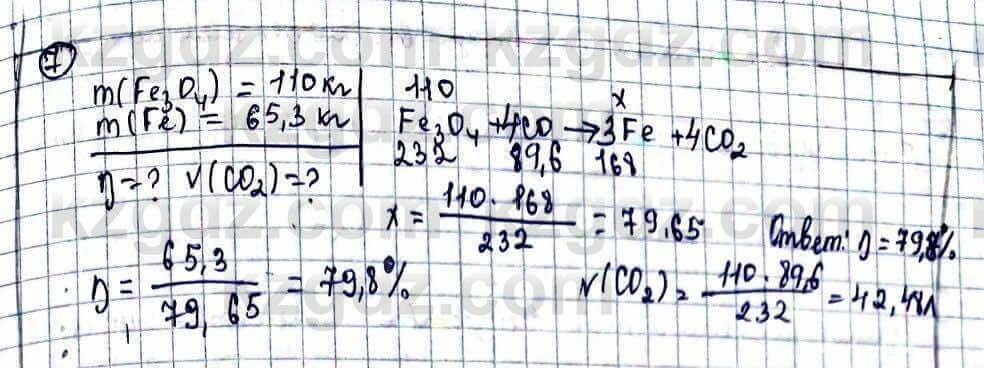 7
m(Fe₃O₄) = 110 кг
m(Fe) = 65,3 кг
η = ? V(CO₂) = ?
110 x
Fe₃O₄ + 4CO → 3Fe + 4CO₂
232 89,6 168
x = 110 · 168 / 232 = 79,65
Ответ: η = 79,8%
η = 65,3 / 79,65 = 79,8%
V(CO₂) = 110 · 89,6 / 232 = 42,4
kzgdz.com